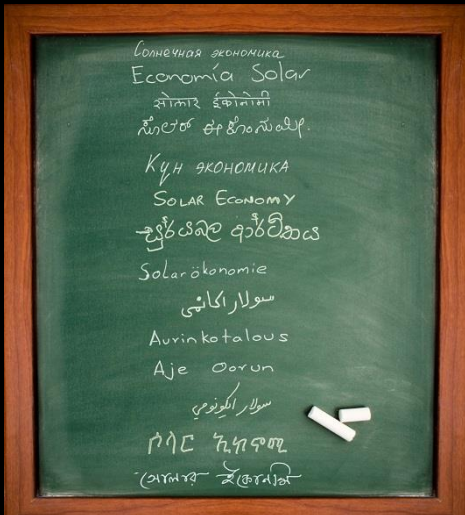 Солнечная экономика
Economía Solar
सोलार ईकोनोमी
ಸೋಲಾರ್ ಈಕೊನಾಮೀ.
Күн экономика
SOLAR ECONOMY
සූර්යබල ආර්ථිකය
Solarökonomie
سولار اکانمی
Aurinkotalous
Aje Oorun
سولار اکونومي
ሶላር ኢኮኖሚ
সোলার ইকোনমি